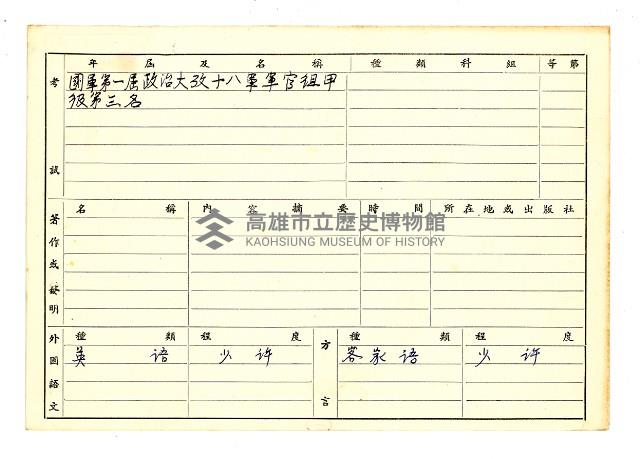 考試
年屆及名稱 種類科組 等第
國軍第一屆政治大攷十八軍軍官組甲
級第三名
著作或發明
名稱 內容摘要 時間 所在地或出版社
高雄市立歷史博物館
KAOHSIUNG MUSEUM OF HISTORY
外國語文 種類 程度 方言 種類 程度
英語 少许 客家语 少许